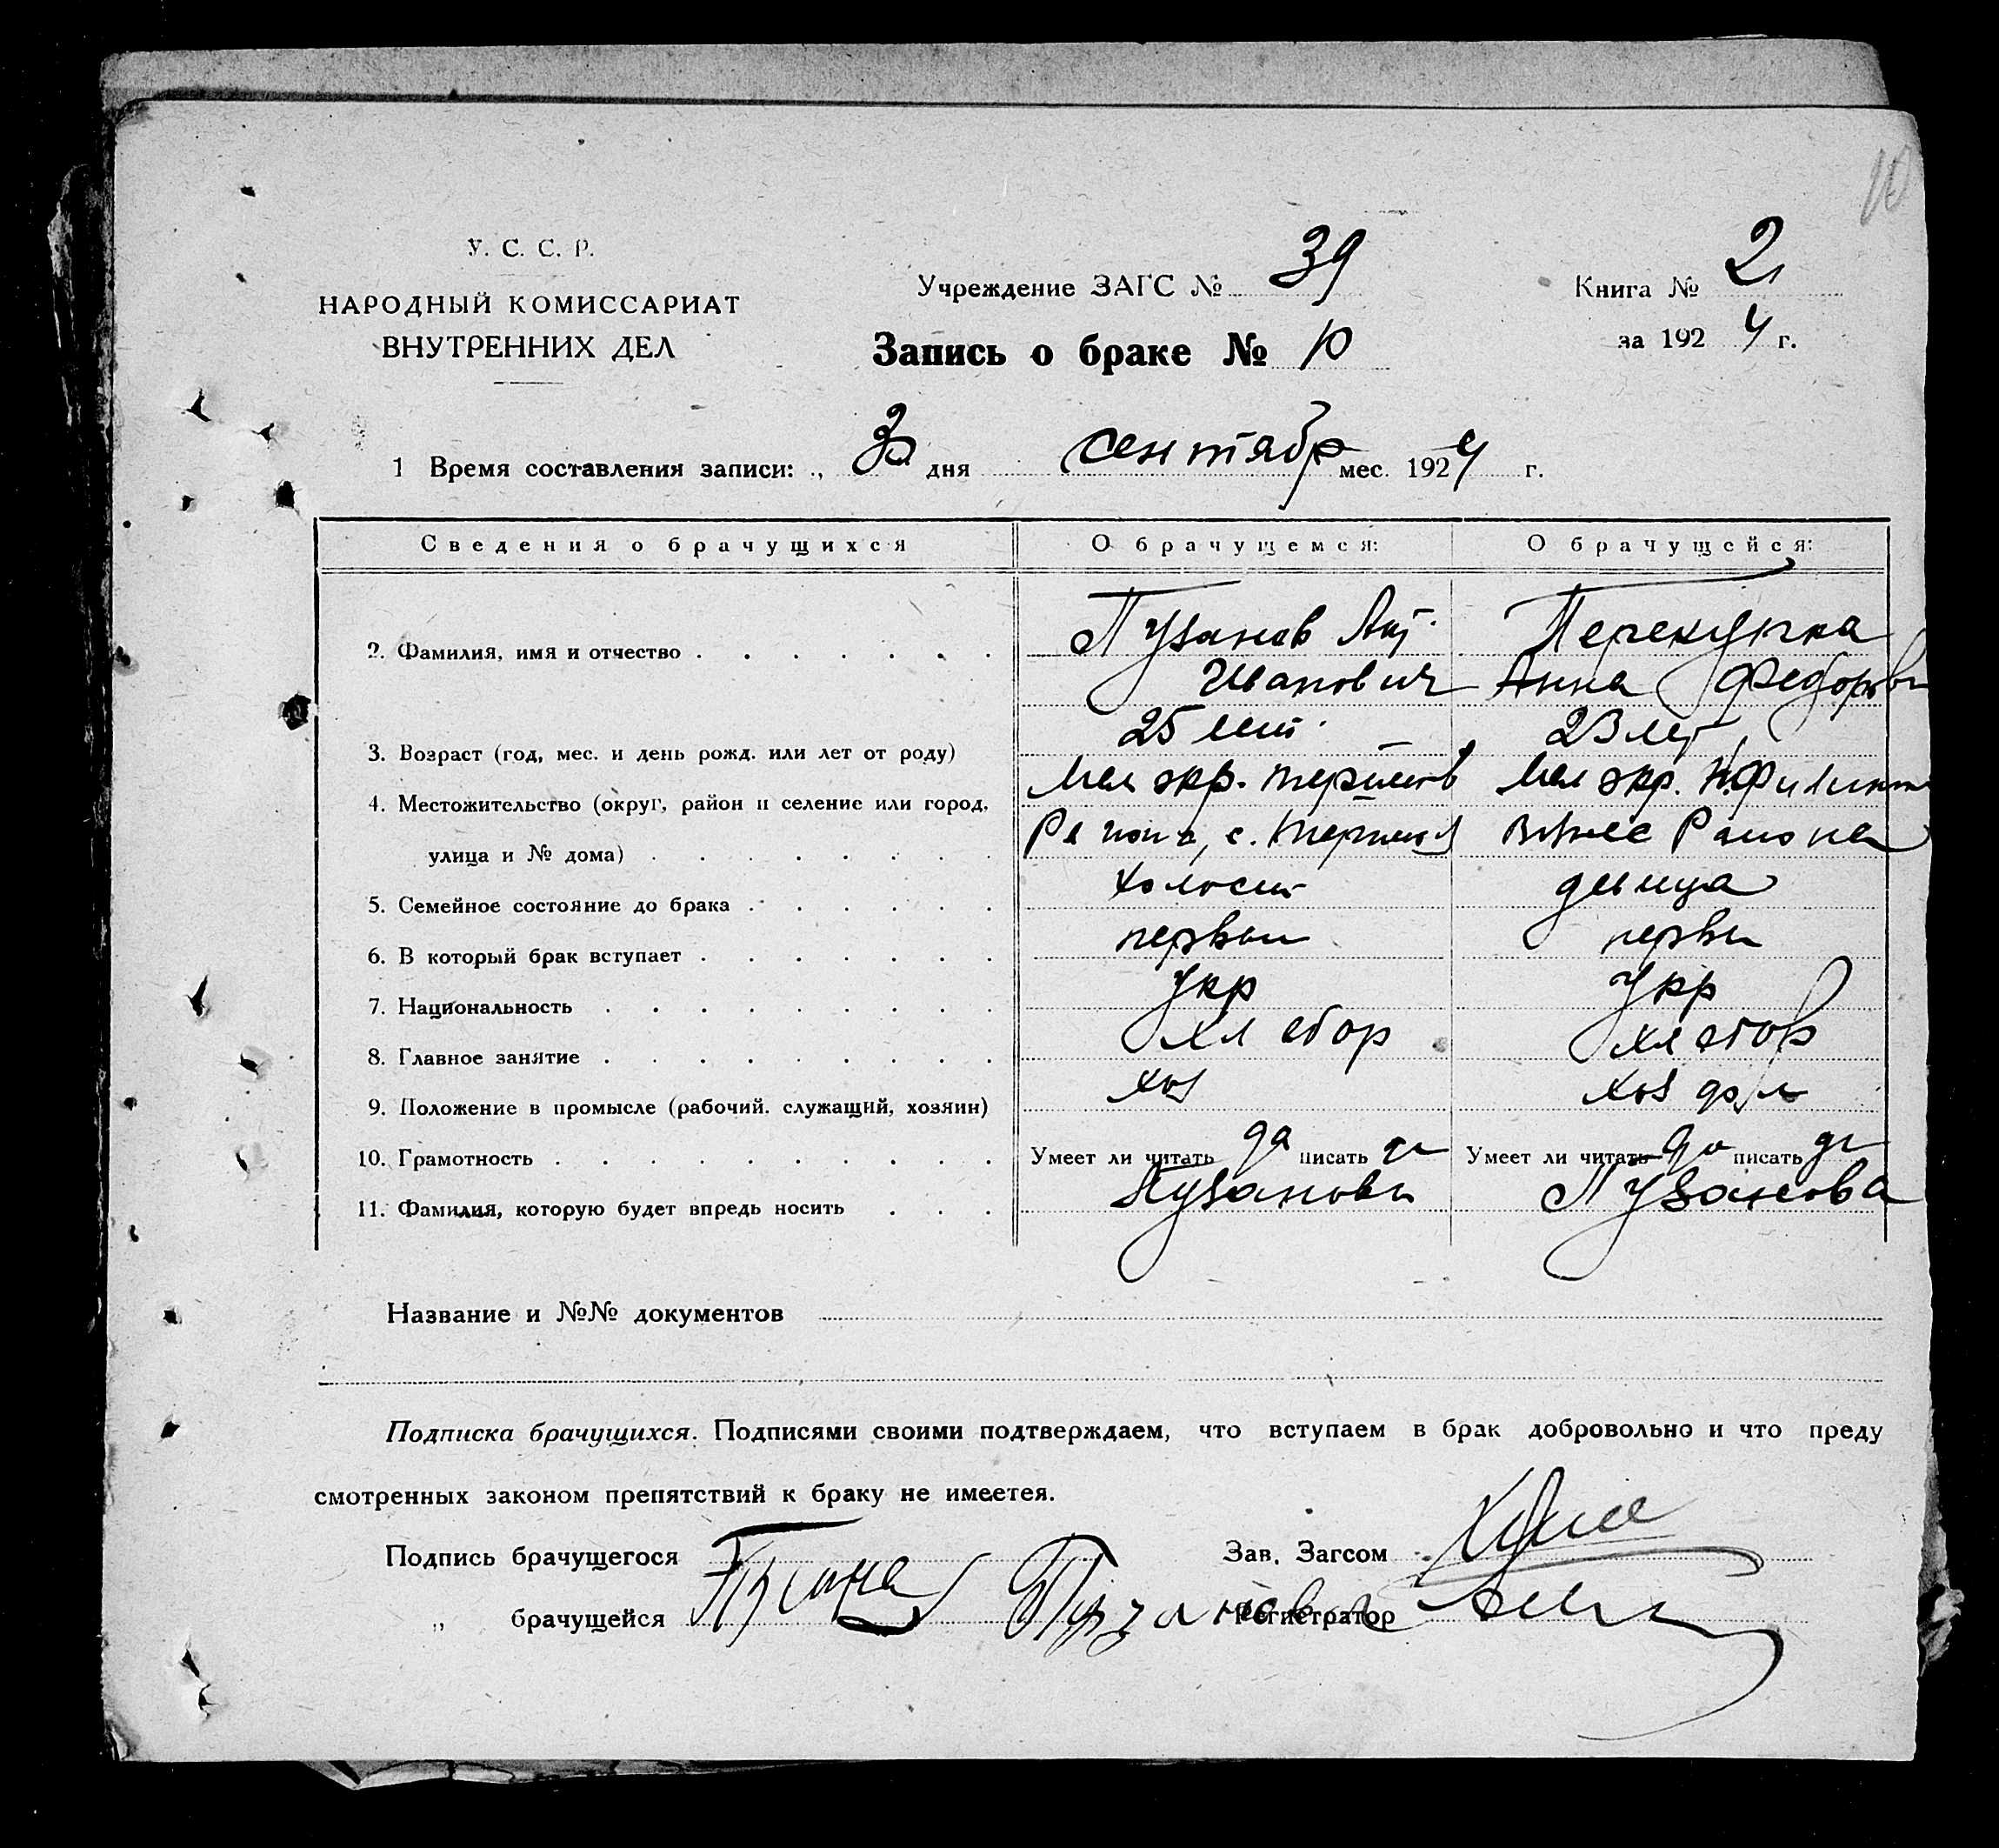 10
У. С. С. Р.
НАРОДНЫЙ КОМИССАРИАТ
ВНУТРЕННИХ ДЕЛ
Учреждение ЗАГС № 39
Книга № 2
за 1924 г.
Запись о браке № 10
1 Время составления записи: „ 30 дня сентябр мес. 1924 г.
Сведения о брачущихся О брачущемся: О брачущейся:
2. Фамилия, имя и отчество Пузанов Иванович
Анна Федоровн
3. Возраст (год, мес. и день рожд. или лет от роду) 25 лет 23 лет
4. Местожительство (округ, район и селение или город, Мел окр. Мел окр.
улица и № дома) с. Района
5. Семейное состояние до брака холост девица
6. В который брак вступает первый первы
7. Национальность Укр Укр
8. Главное занятие Хлебор Хлебор
9. Положение в промысле (рабочий. служащий, хозяин) хоз хоз
10. Грамотность Умеет ли читать да писать да Умеет ли читать да писать да
11. Фамилия, которую будет впредь носить Пузанов Пузанова
Название и №№ документов
Подписка брачущихся. Подписями своими подтверждаем, что вступаем в брак добровольно и что преду
смотренных законом препятствий к браку не имеется.
Подпись брачущегося Зав. Загсом
„ брачущейся Пузанова Регистратор